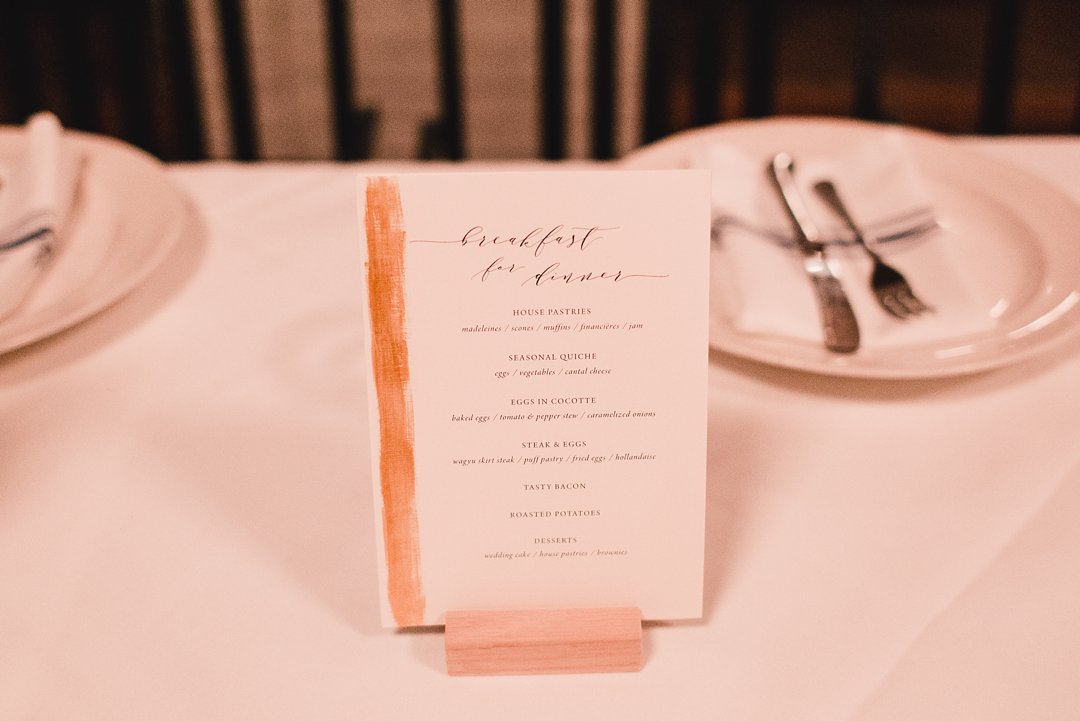 breakfast
for dinner
HOUSE PASTRIES
madeleines / scones / muffins / financières / jam
SEASONAL QUICHE
eggs / vegetables / cantal cheese
EGGS IN COCOTTE
baked eggs / tomato & pepper stew / caramelized onions
STEAK & EGGS
wagyu skirt steak / puff pastry / fried eggs / hollandaise
TASTY BACON
ROASTED POTATOES
DESSERTS
wedding cake / house pastries / brownies